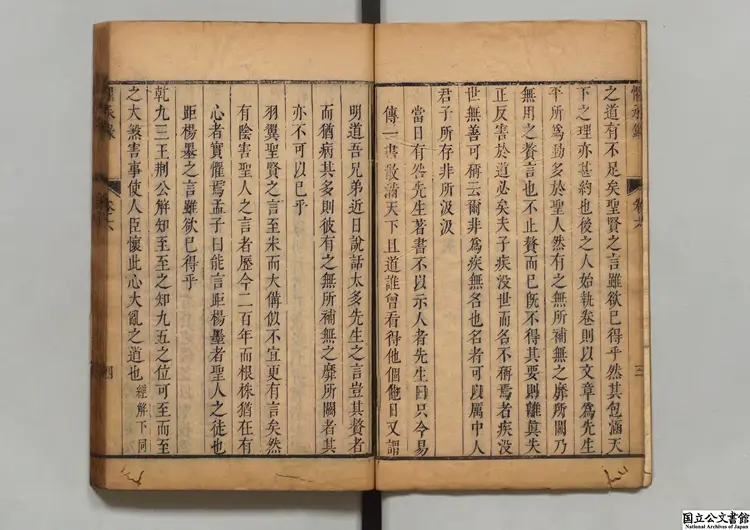 之道有不足矣聖賢之言雖欲已得乎然其包涵天
下之理亦甚約也後之人始執卷則以文章爲先生
平所爲動多於聖人然有之無所補無之靡所闕乃
無用之贅言也不止贅而已旣不得其要則離眞失
正反害於道必矣夫子疾没世而名不稱焉者疾没
世無善可稱云爾非爲疾無名也名者可以厲中人
君子所存非所汲汲
當日有
先生著書不以示人者先生曰只今易
傳一書散滿天下且道誰曾看得他個他日又謂
明道吾兄弟近日說話太多先生之言豈其贅者
而猶病其多則彼有之無所補無之靡所闕者其
亦不可以已乎
羽翼聖賢之言至朱而大備似不宜更有言矣然
有陰害聖人之言者歷今二百年而根株猶在有
心者實懼焉孟子曰能言距楊墨者聖人之徒也
距楊墨之言雖欲已得乎
乾九三王荆公解知至至之知九五之位可至而至
之大煞害事使人臣懷此心大亂之道也 經解下同
卷六
三
卷六
四
国立公文書館
National Archives of Japan